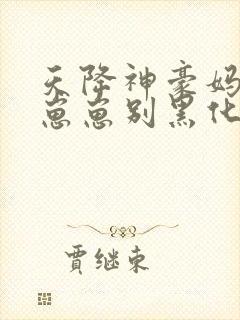 天降神豪妈
崽崽别黑化
贾继东